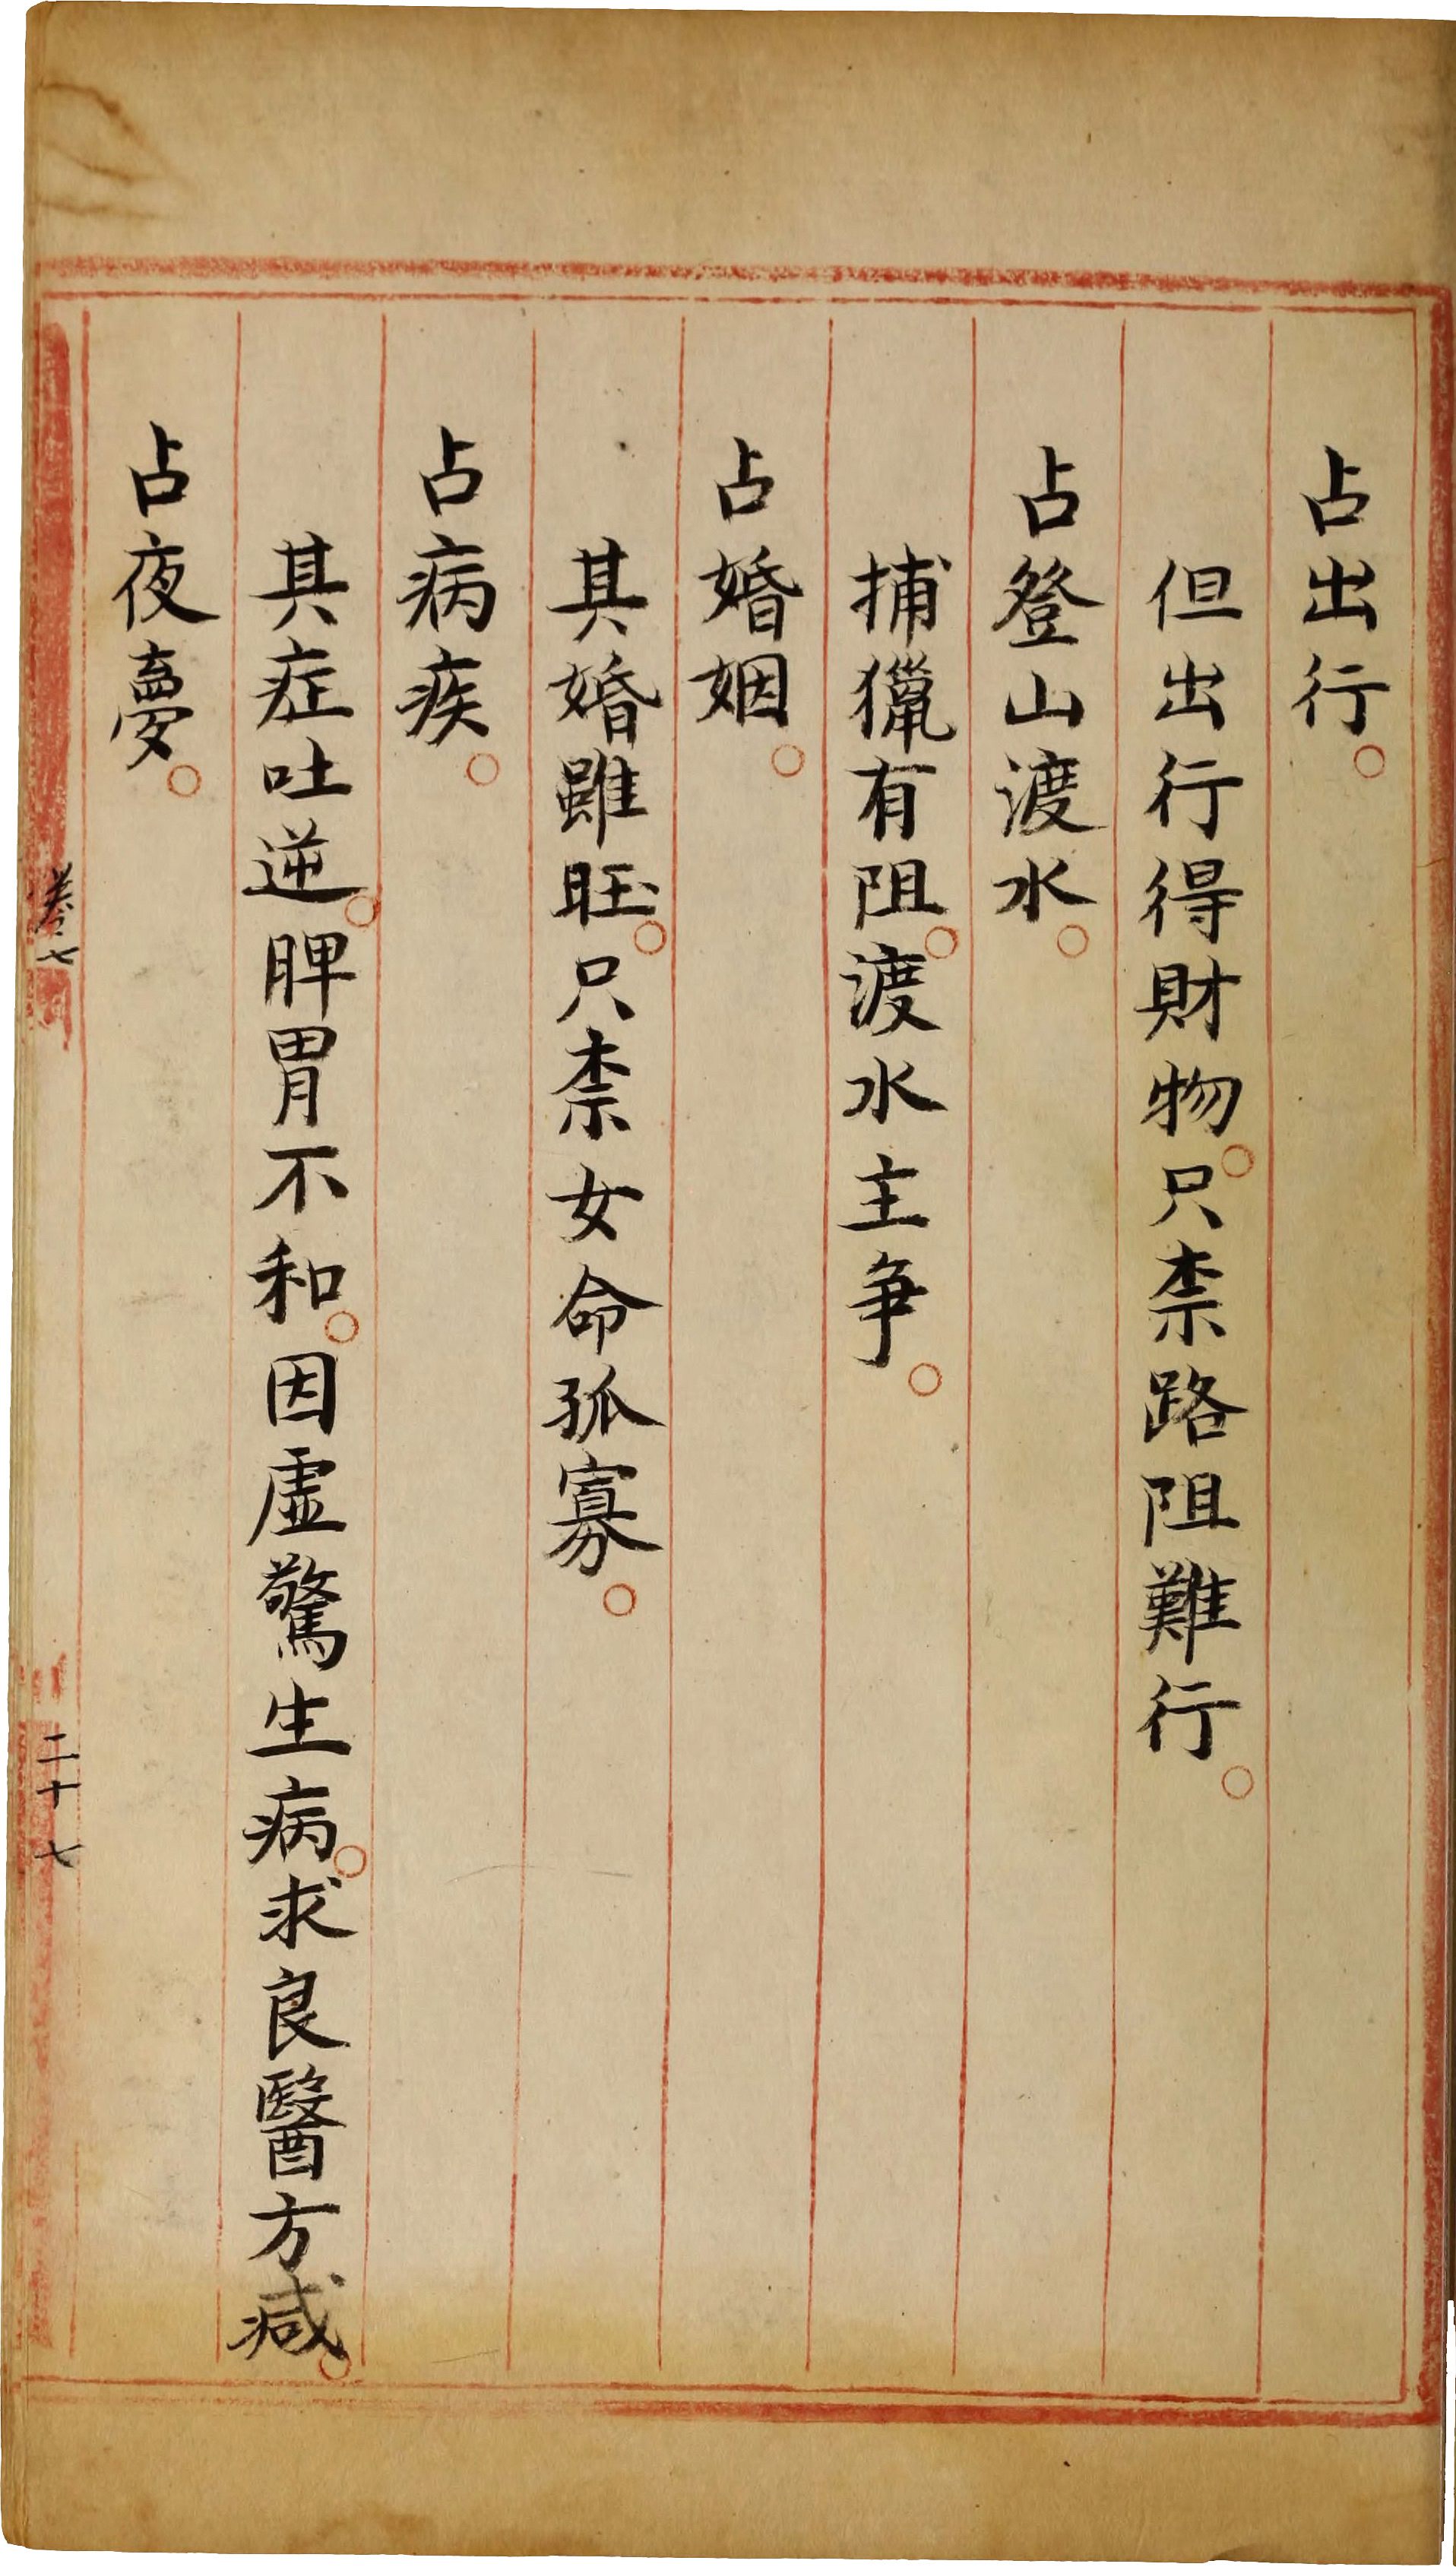 占出行。
但出行得財物。只柰路阻難行。
占登山渡水。
捕獵有阻。渡水主爭。
占婚姻。
其婚雖旺。只柰女命孤寡。
占病疾。
其症吐逆。脾胃不和。因虛驚生病。求良醫方減。
占夜夢。
卷七
二十七